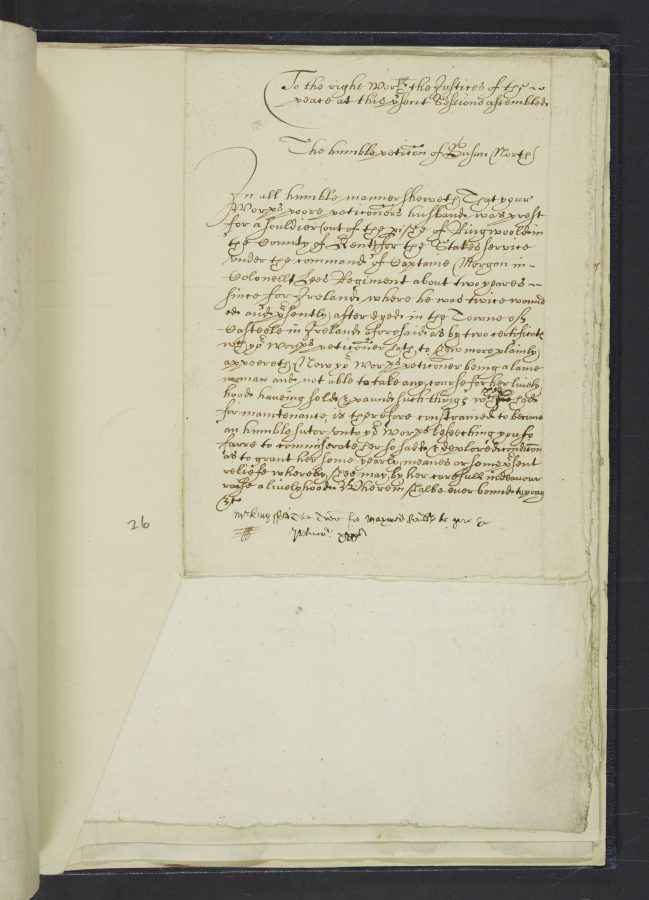 To the right Worpll the Justices of the
peace at this p'sent Sessions assembled
The humble peticon of Susan North
In all humble manner sheweth That your
Worps poore peticoners husband was prest
for a souldier out of the p'ishe of Ringwoold in
the County of Kent for the States service
under the command of Captaine Morgan in
Colonell Lees Regiment about two yeares
since for Ireland where he was twice wound
ed and p'sently after dyed in the Towne of
Casteele in Ireland aforesaid as by two certificats
wch yor Worps peticoner hath to shew more plainly
appeereth Now yor Worps peticoner being a lame
woman and not able to take any course for her lively
hood having sold & paund such things wch she had
for maintenance, is therefore constrained to become
an humble sutor unto yor Worps beseeching you so
farre to commiserate her so sad & deplored condicon
as to grant her some yearly meanes or some p'sent
reliefe whereby shee may by her carefull indeavour
rayse a livelyhood. Wherein shalbe ever bound to pray
&c
26